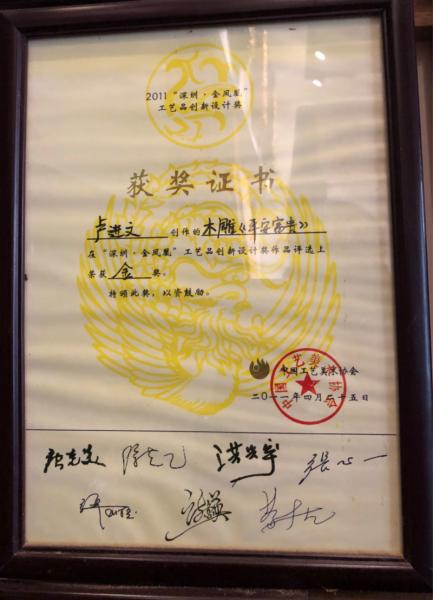 2011“深圳·金凤凰”
工艺品创新设计奖
获奖证书
卢进文 创作的木雕《平安富贵》
在“深圳·金凤凰”工艺品创新设计奖作品评选上
荣获 金 奖。
特颁此奖，以资鼓励。
中国工艺美术协会
二〇一一年四月二十五日
张心一